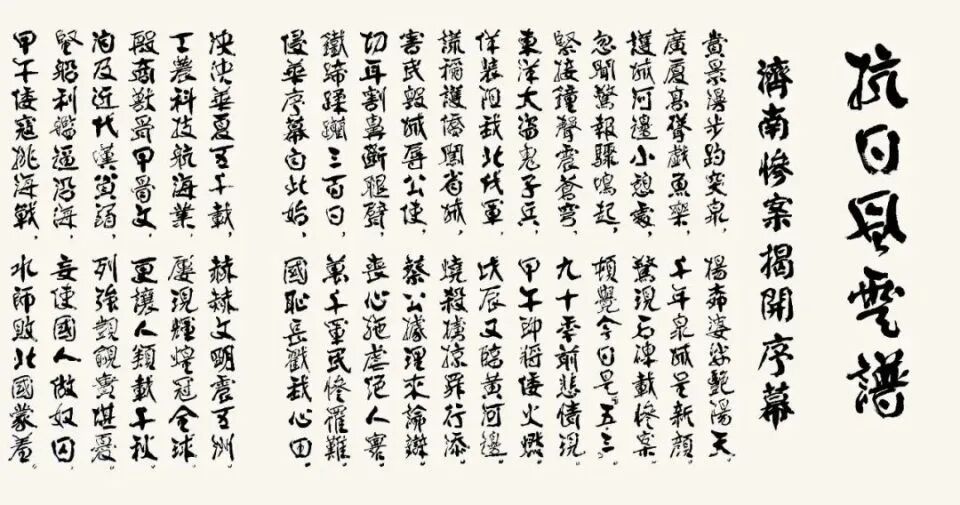 抗日風雲譜
濟南慘案揭開序幕
賞景漫步趵突泉，楊柳婆娑艷陽天。
廣廈高聳戲魚樂，千年泉城呈新顏。
護城河邊小憩處，驚現石碑載慘案。
忽聞驚報驟鳴起，頓覺今日是“五三”。
緊接鐘聲震蒼穹，九十年前悲情現。
東洋大盜鬼子兵，甲午即將倭火燃。
佯裝阻我北伐軍，戊辰又臨黃河邊。
謊稱護僑闖省城，燒殺擄掠罪行添。
害民毀城辱公使，蔡公據理來論辯。
切耳割鼻斷腿臂，喪心施虐絕人寰。
鐵蹄蹂躪三百日，萬千軍民慘罹難。
侵華序幕自此始，國恥長戳我心田。
泱泱華夏五千載，赫赫文明震五洲。
工農科技航海業，屢現輝煌冠全球。
殷商獸骨甲骨文，更讓人類載千秋。
洵及近代漢貧弱，列強覬覦實堪憂。
堅船利艦逼沿海，妄使國人做奴囚。
甲午倭寇挑海戰，水師敗北國蒙羞。